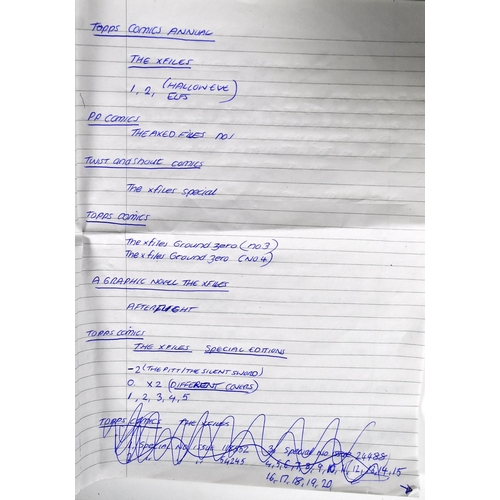 TOPPS COMICS ANNUAL
THE XFILES
1, 2, (HALLOW EVE
ELFS)
PP COMICS
THE AXED FILES NO 1
TWIST and shout COMICS
The xfiles special
TOPPS COMICS
The xfiles Ground Zero (no 3)
The xfiles Ground Zero (NO.4)
A GRAPHIC NOVEL THE XFILES
AFTERFLIGHT
TOPPS COMICS
THE XFILES SPECIAL EDITIONS
-2 (THE PITT/THE SILENT SWORD)
0 X2 (DIFFERENT COVERS)
1, 2, 3, 4, 5
TOPPS COMICS THE XFILES
Special No 3 Special No 24488
54245 4,5,6,7,8,9,10,11,12,13,14,15
16,17,18,19,20